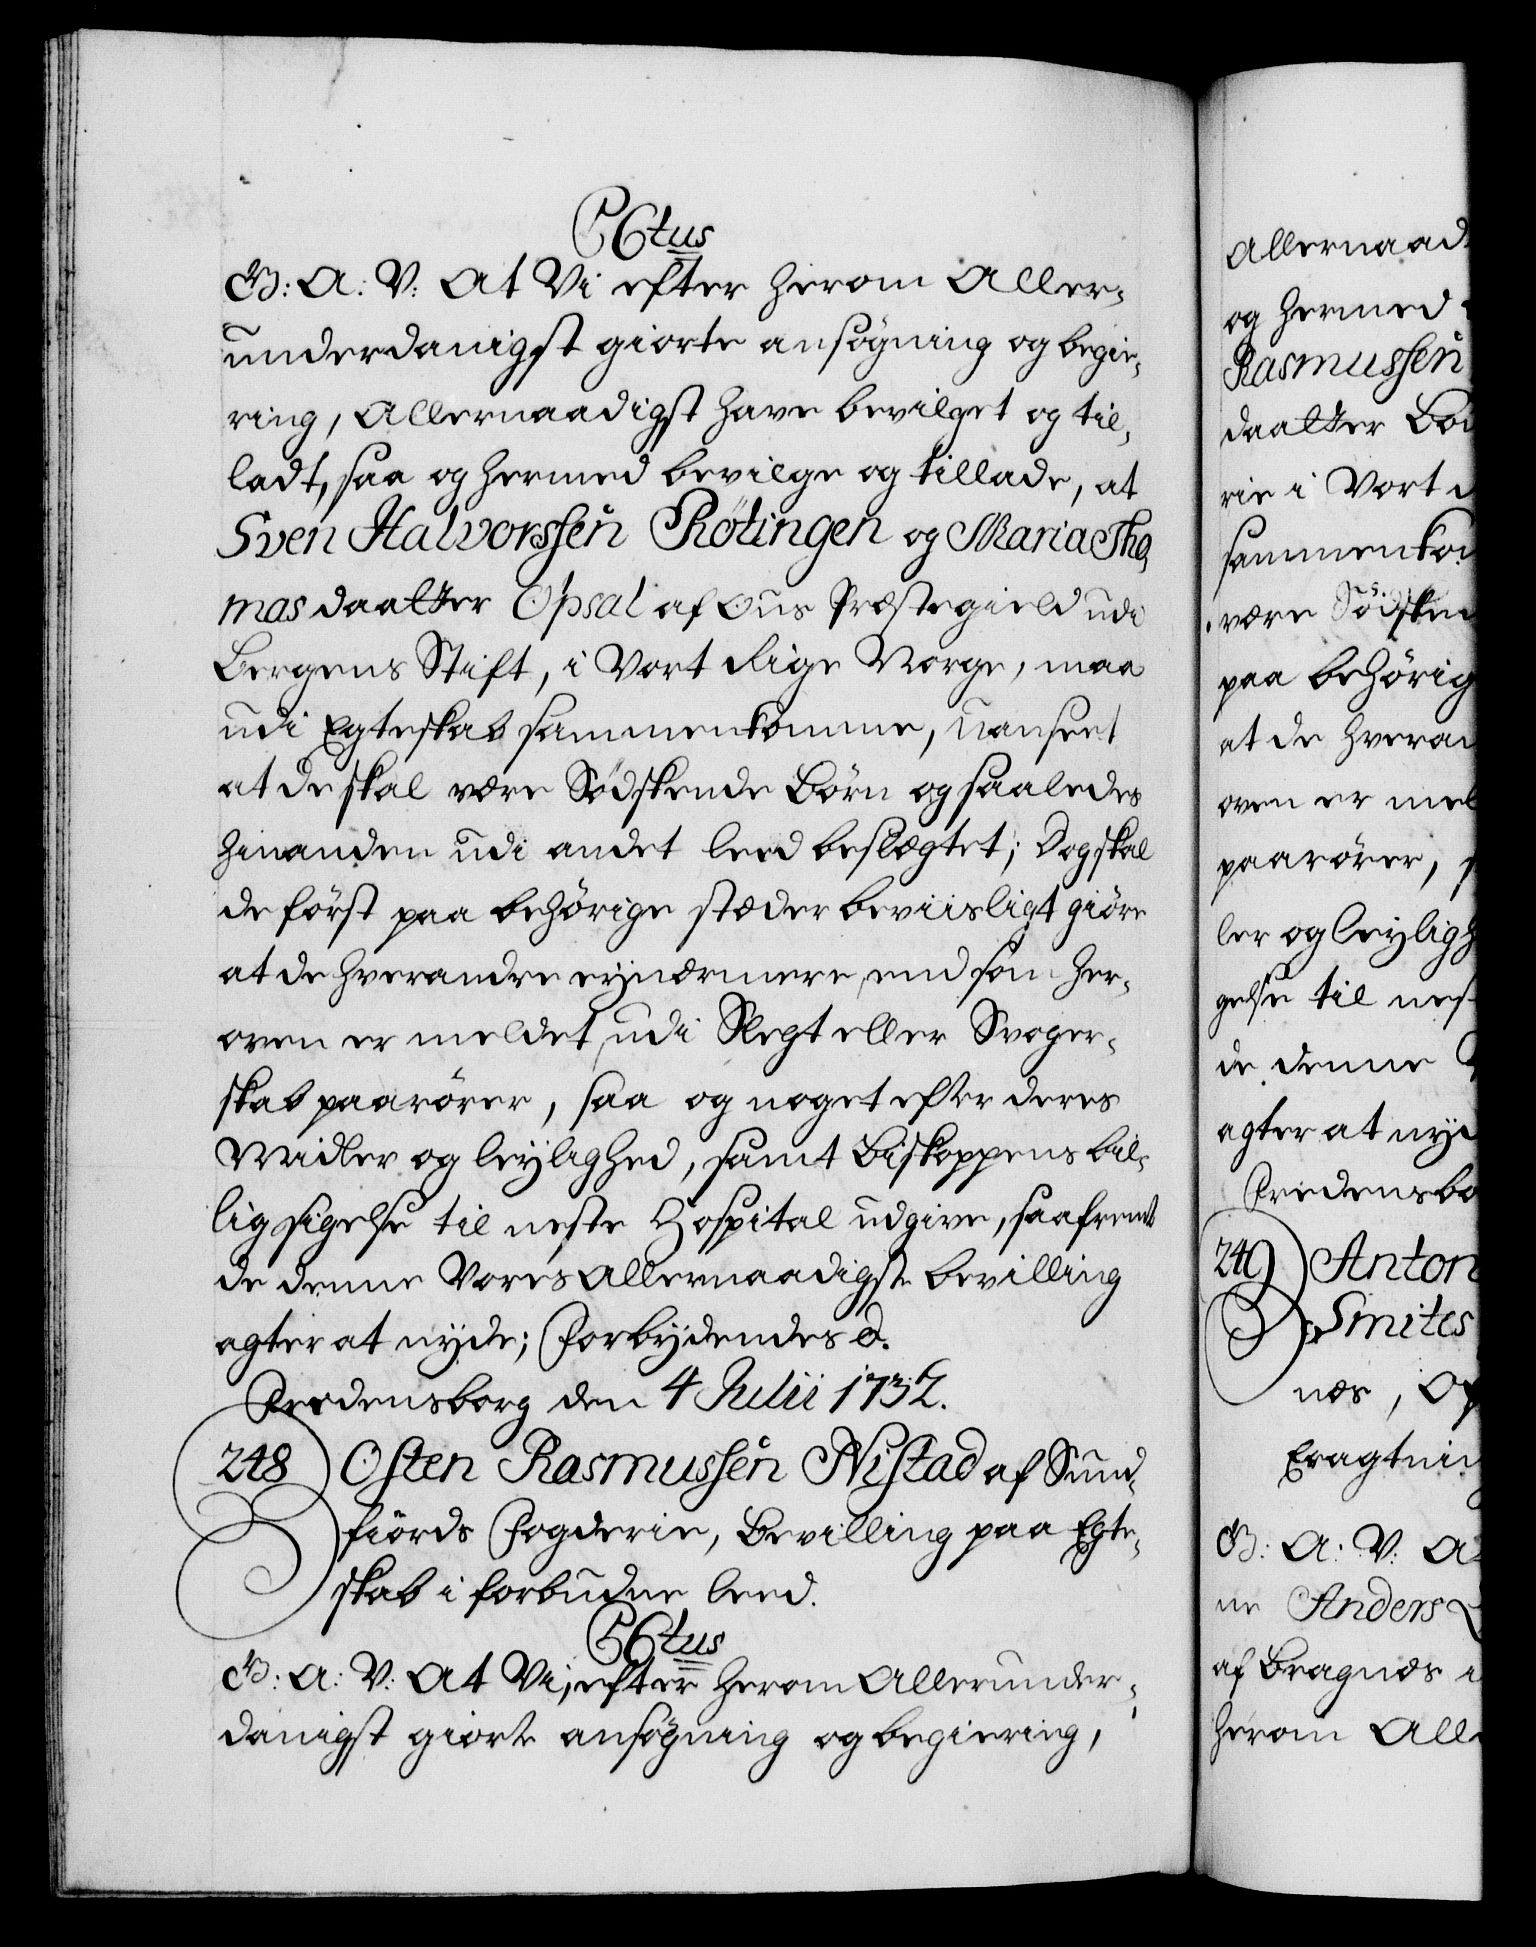 C6tus
G: A: V: At Vi efter herom Aller-
underdanigst giorte ansøgning og begie-
ring, Allernaadigst have bevilget og til-
ladt, saa og hermed bevilge og tillade, at
Sven Halvorssen Røtingen og Maria Tho-
mas daatter Opsal af Ous Præstegield udi
Bergens Stift, i Vort Rige Norge, maa
udi Egteskab sammenkomme, uanseet
at de skal være Sødskende Børn og saaledes
hinanden udi andet leed beslægtet; Dog skal
de først paa behørige stæder beviisligt giøre
at de hverandre ey nærmere, end som her-
oven er meldet, udi Slegt eller Svoger-
skab paarører, saa og noget efter deres
Midler og leylighed, samt Biskoppens bil-
lig sigelse til neste Hospital udgive, saafremt
de denne Vores Allernaadigste bevilling
agter at nyde; Forbydendes &.
Fredensborg den 4 Julii 1732.
248 Osten Rasmussen Nistad af Sund-
fiords Fogderie, Bevilling paa Egte-
skab i forbudne leed.
C6tus
G: A: V: At Vi, efter herom Allerunder-
danigst giorte ansøgning og begiering,
Allernaad
og hermed
Rasmussen
daatter Bo
rie i Vort
sammenkom
være Sødsken
paa behørig
at de hveran
oven er mel
paarører,
ler og leyligh
gelse til nes
de denne
agter at nyd
Fredensbo
249 Anton
Smites
næs,
Eragtnin
G: A: V: A
ne Anders
af Bragnæs
herom Alle